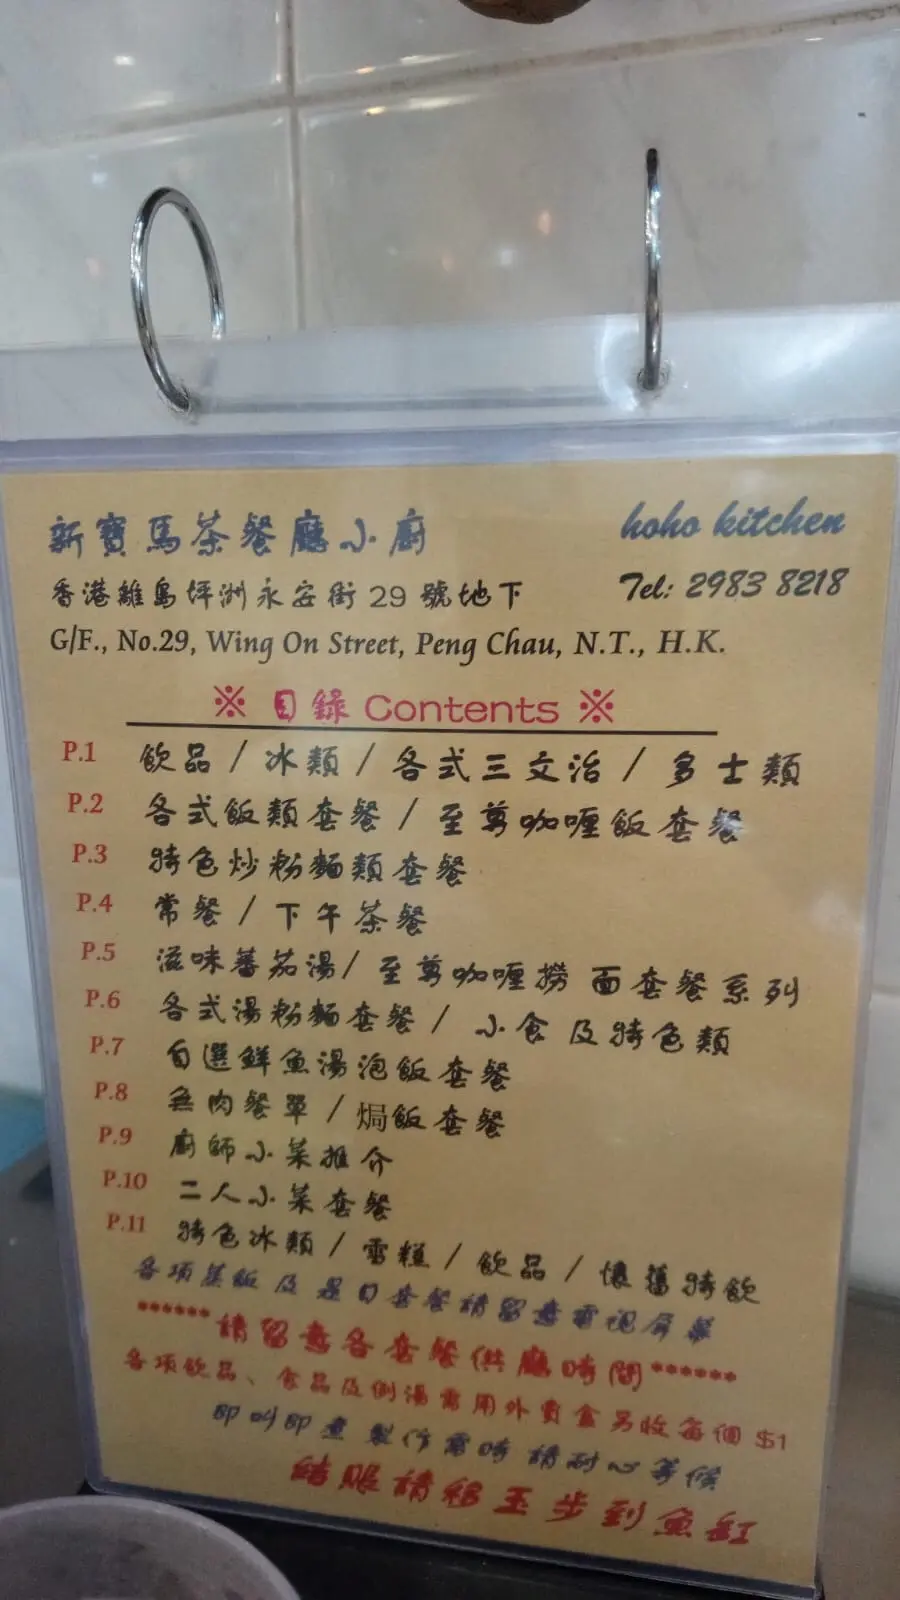 新寶馬茶餐廳小廚
hoho kitchen
香港離島坪洲永安街29號地下
Tel: 2983 8218
G/F., No.29, Wing On Street, Peng Chau, N.T., H.K.
※ 目錄 Contents ※
P.1 飲品 / 冰類 / 各式三文治 / 多士類
P.2 各式飯類套餐 / 至尊咖喱飯套餐
P.3 特色炒粉麵類套餐
P.4 常餐 / 下午茶餐
P.5 滋味蕃茄湯/ 至尊咖喱撈面套餐系列
P.6 各式湯粉麵套餐 / 小食及特色類
P.7 自選鮮魚湯泡飯套餐
P.8 無肉餐單 / 焗飯套餐
P.9 廚師小菜推介
P.10 二人小菜套餐
P.11 特色冰類 / 雪糕 / 飲品 / 懷舊特飲
各項蒸飯及是日套餐請留意電視屏幕
******請留意各套餐供應時間******
各項飲品、食品及例湯需用外賣盒另收每個 $1
即叫即煮 製作需時 請耐心等候
結賬請移玉步到魚缸